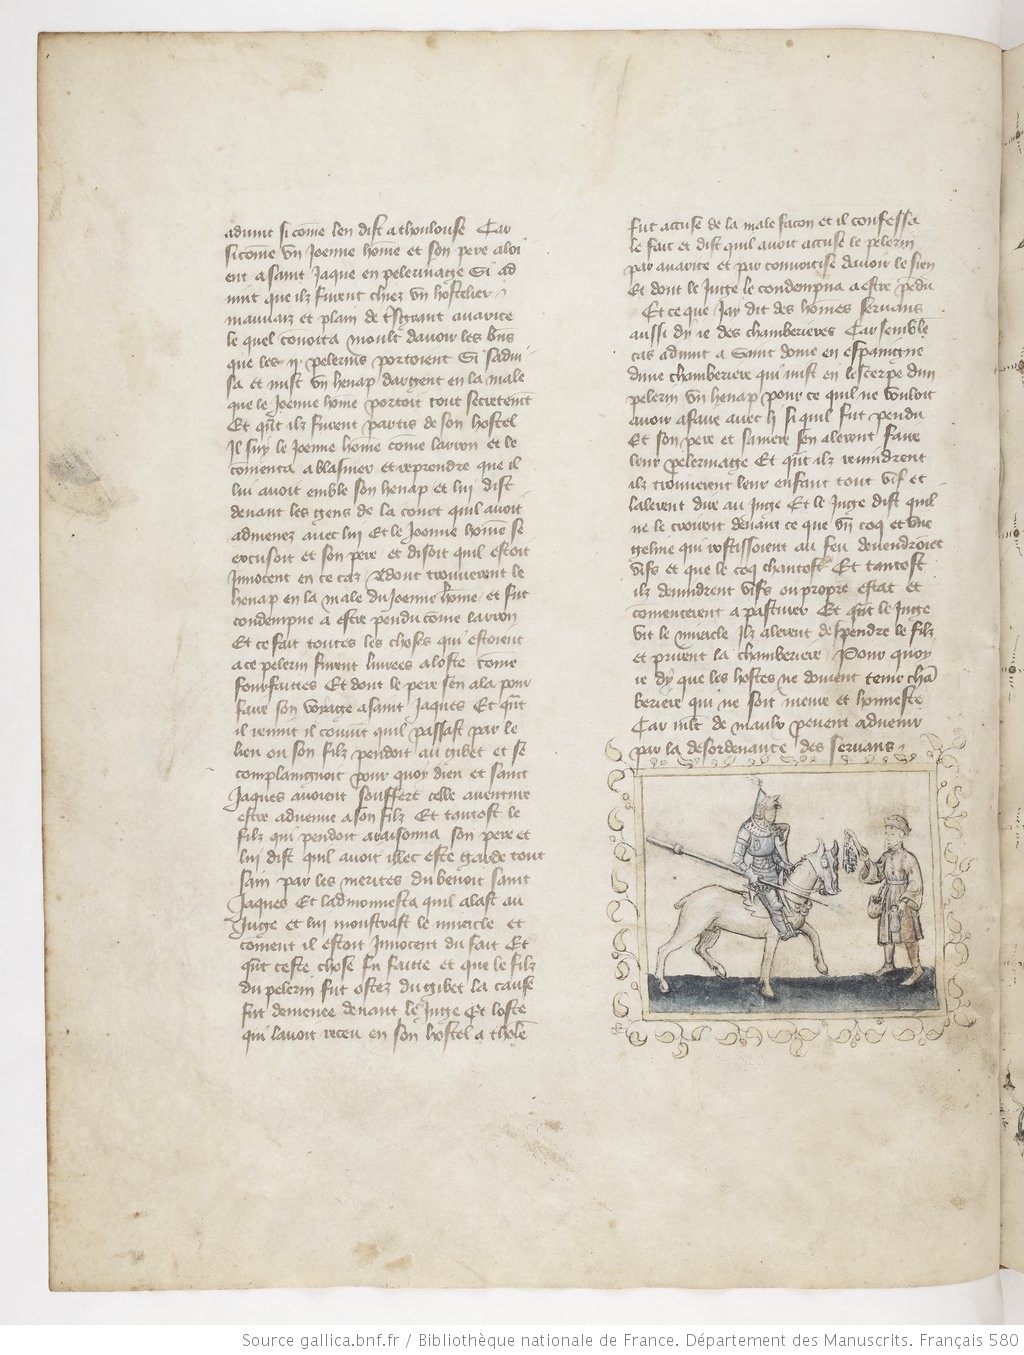 advint si cõme len dist a thoulouse Car
si cõme vn Joenne hõme et son pere aloi
ent a saint Jaque en pelerinage Si ad
vint que ilz furent chiez vn hostelier
mauuaiz et plain de tsgrant auarice
le quel conoita moult dauoir les biẽs
que les .ii. pelerins portoient Si sadui
sa et mist vn henap dargent en la male
que le Joenne hõme portoit tout secretemẽt
Et qñt ilz furent partis de son hostel
Il suy le Joenne hõme cõme larron et le
cõmenca a blasmer et reprendre que il
lui auoit emble son henap et lui dist
deuant les gens de la court quil auoit
admenez auec lui Et le Joenne hõme se
excusoit et son pere et disoit quil estoit
Innocent en ce caz Adont trouuerent le
henap en la male du Joenne hõme et fut
condempne a estre pendu cõme larron
Et ce fait toutes les choses qui estoient
a ce pelerin furent liurees a loste cõme
fourfaittes Et dont le pere sen ala pour
faire son voyage a saint Jaques Et qñt
il reuint il couuint quil passast par le
lieu ou son filz pendoit au gibet et se
complaingnoit pour quoy dieu et saint
Jaques auoient souffert celle auenture
estre aduenue a son filz Et tantost le
filz qui pendoit araisonna son pere et
lui dist quil auoit illec este garde tout
sain par les merites du benoit saint
Jaques Et ladmonnesta quil alast au
Juge et lui monstrast le miracle et
coment il estoit Innocent du fait Et
qñt ceste chose fu faitte et que le filz
du pelerin fut ostez du gibet la cause
fut demenee deuant le Juge Et loste
qui lauoit receu en son hostel a tholẽ
fut accuse de la male facon et il confessa
le fait et dist quil auoit accuse le pelerin
par auarice et par conuoitise dauoir le sien
Et dont le Juge le condempna a estre pẽdu
Et ce que Jay dit des hõmes seruans
aussi dy ie des chamberieres Car semble
cas aduint a Saint dome en espaingne
dune chamberiere qui mist en lescerpe dun
pelerin vn henap pour ce quil ne vouloit
auoir afaire auec li si quil fut pendu
Et son pere et sa mere sen alerent faire
leur pelerinage Et qñt ilz reuindrent
ilz trouuerent leur enfant tout vif et
lalerent dire au Juge Et le Juge dist quil
ne le croiroit deuant ce que vn coq et vne
geline qui rostissoient au feu deuendroiẽt
vifs et que le coq chantost Et tantost
ilz deuindrent vifs ou propre estat et
cõmencerent a pasturer Et qñt le Juge
vit le miracle Ilz alerent despendre le filz
et prirent la chamberiere Pour quoy
ie dy que les hostes ne doiuent tenir chã
beriere qui ne soit meure et honneste
Car mlt de maulx peuent aduenir
par la desordenance des seruans
Source gallica.bnf.fr / Bibliothèque nationale de France. Département des Manuscrits. Français 580